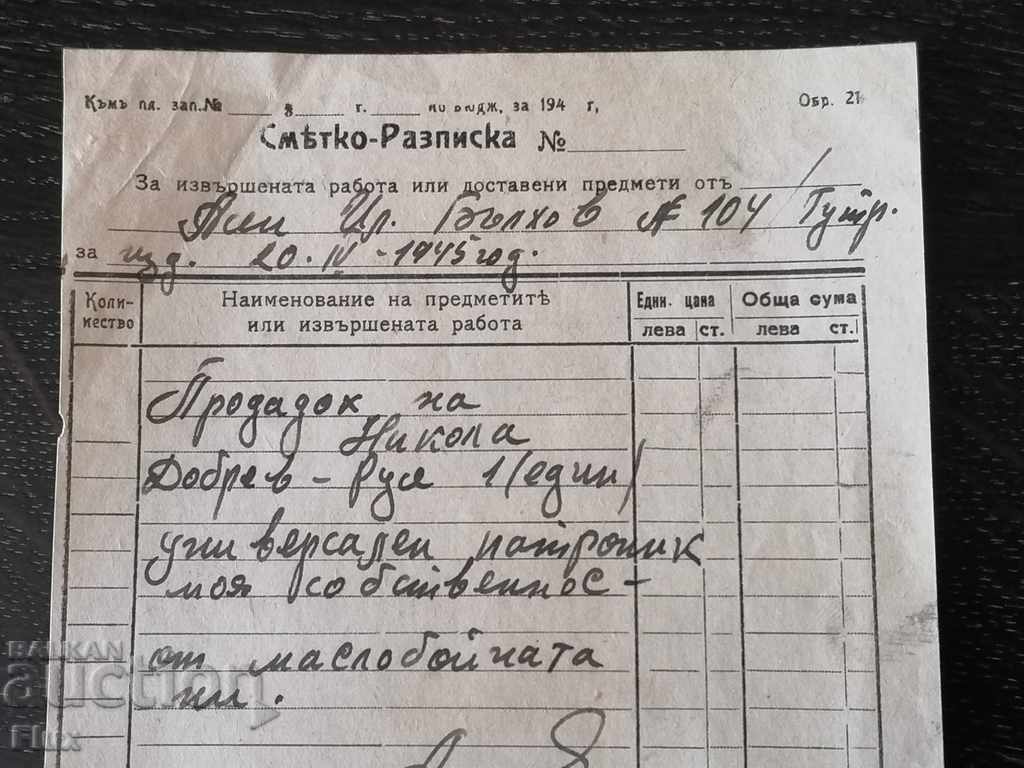 Къмъ пл. зап. № ____ з ____ г. ____ по бюдж, за 194 г,
Обр. 21
Смѣтко-Разписка №
За извършената работа или доставени предмети отъ
Асен Ил. Бълхов № 104
за изд. 20. IV - 1945 год.
Количество
Наименование на предметитѣ или извършената работа
Един. цана
Обща сума
лева ст.
лева ст.
Продадох на
Никола
Добрев - Русе 1 (един)
универсален патроник
моя собственнос-
от маслобойната
ни.
BALKAN
auction
Flux